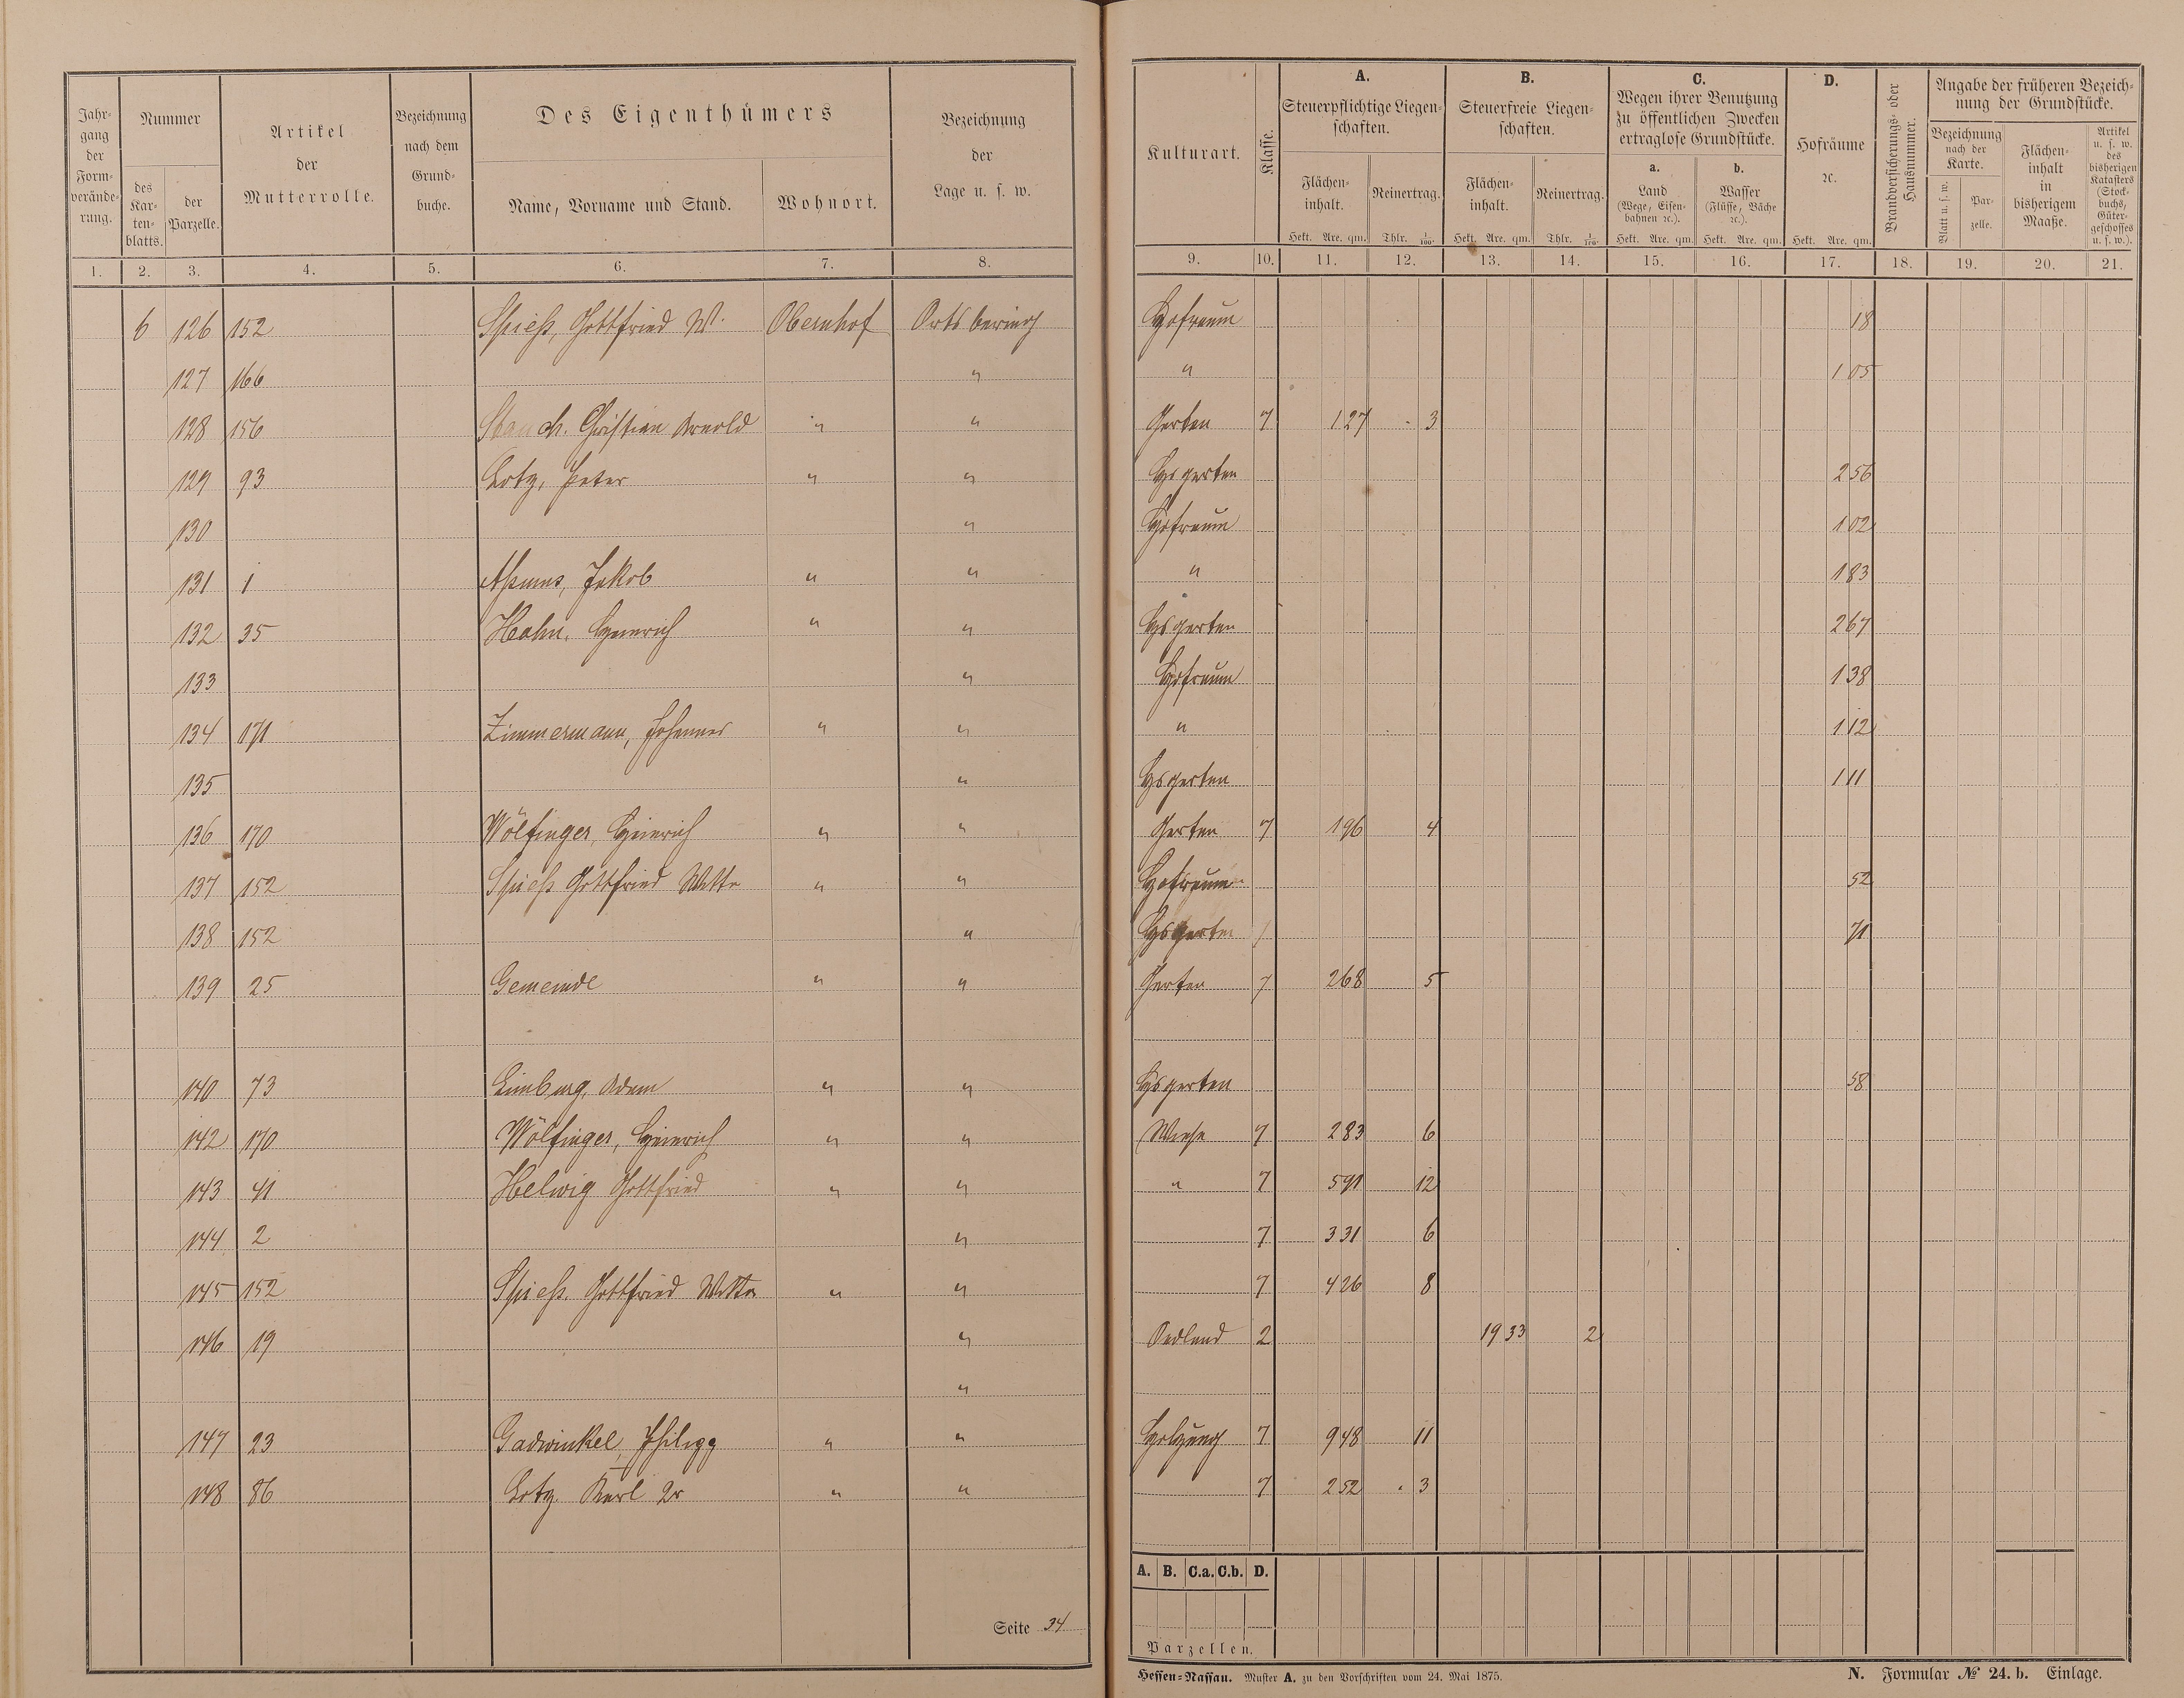 Jahrgang der Formveränderung.
Nummer
des Kartenblatts.
der Parzelle.
Artikel der Mutterrolle.
Bezeichnung nach dem Grundbuche.
Des Eigenthümers
Name, Vorname und Stand.
Wohnort.
Bezeichnung der Lage u. s. w.
Kulturart.
Klasse.
A.
Steuerpflichtige Liegenschaften.
Flächeninhalt.
Hekt. Are. qm.
Reinertrag.
Thlr. 1/100.
B.
Steuerfreie Liegenschaften.
Flächeninhalt.
Hekt. Are. qm.
Reinertrag.
Thlr. 1/100.
C.
Wegen ihrer Benutzung zu öffentlichen Zwecken ertraglose Grundstücke.
a.
Land
(Wege, Eisenbahnen ꝛc.).
Hekt. Are. qm.
b.
Wasser
(Flüsse, Bäche ꝛc.).
Hekt. Are. qm.
D.
Hofräume ꝛc.
Hekt. Are. qm.
Brandversicherungs- oder Hausnummer.
Angabe der früheren Bezeichnung der Grundstücke.
Bezeichnung nach der Karte.
Blatt u. s. w.
Parzelle.
Flächeninhalt in bisherigem Maaße.
Artikel u. s. w. des bisherigen Katasters (Stockbuchs, Gütergeschosses u. s. w.).
1. 2. 3. 4. 5. 6. 7. 8. 9. 10. 11. 12. 13. 14. 15. 16. 17. 18. 19. 20. 21.
6 126 152 Spieß, Gottfried W. Obernhof Ortsbering Hofraum 18
127 166 " " 1 05
128 156 Stauch. Christian Arnold " " Garten 7 1 27 . 3
129 93 Lotz, Peter " " Hsgarten 2 56
130 " Hofraum 1 02
131 1 Aßmus, Jakob " " " 1 83
132 35 Hahn, Heinrich " " Hsgarten 2 67
133 " Hofraum 1 38
134 171 Zimmermann, Johannes " " " 1 12
135 " Hsgarten 1 11
136 170 Wölfinger, Heinrich " " Garten 7 1 96 4
137 152 Spieß Gottfried Wittw " " Hofraum 52
138 152 " Hsgarten 71
139 25 Gemeinde " " Garten 7 2 68 5
140 73 Limburg, Adam " " Hsgarten 58
142 170 Wölfinger, Heinrich " " Wiese 7 2 83 6
143 41 Helwig Gottfried " " " 7 5 91 12
144 2 " 7 3 31 6
145 152 Spieß. Gottfried Wittw " " 7 4 26 8
146 19 " Oedland 2 19 33 2
"
147 23 Gadwinkel, Philipp " " Holzung 7 9 48 11
148 86 Lotz Karl 2r " " 7 2 52 . 3
A. B. C.a. C.b. D.
Parzellen.
Seite 34
Hessen-Nassau. Muster A. zu den Vorschriften vom 24. Mai 1875.
N. Formular № 24. b. Einlage.